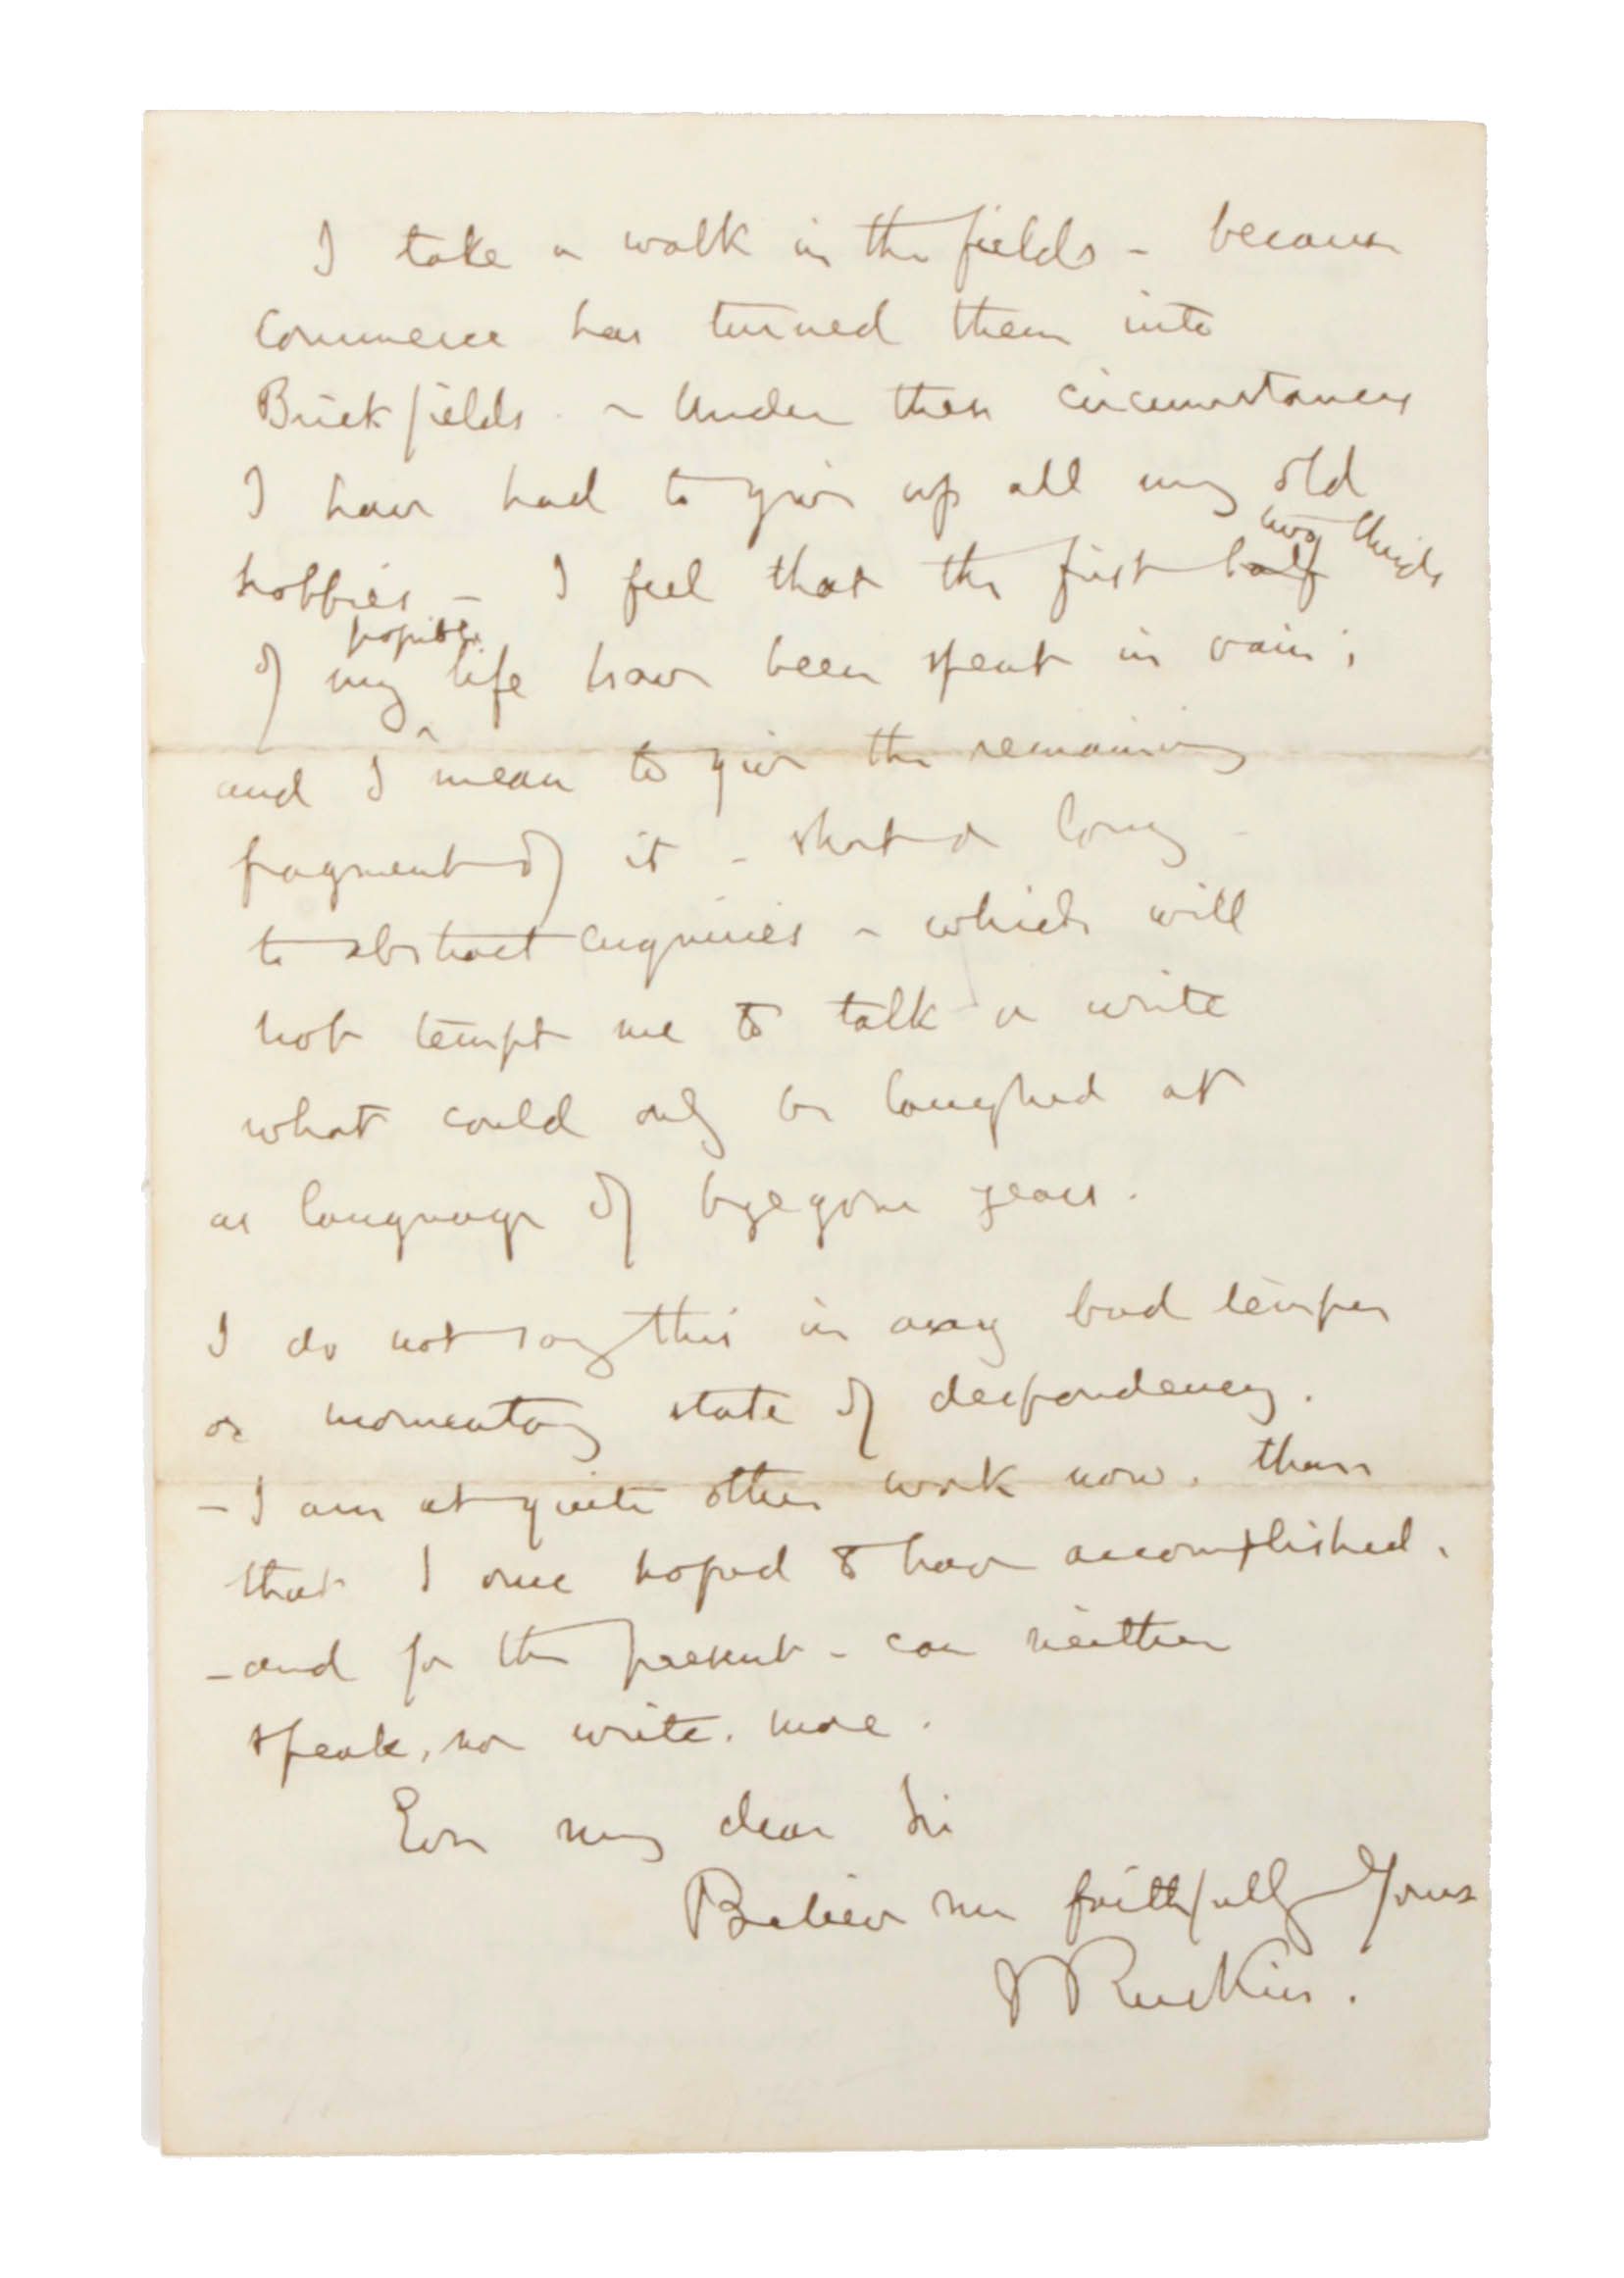 I take a walk in the fields – because
Commerce has turned them into
Brickfields. – Under these circumstances
I have had to give up all my old
two thirds
hobbies – I feel that the first half
possible
of my life have been spent in vain;
and I mean to give the remaining
fragment of it – short or long –
to abstract enquiries – which will
not tempt me to talk or write
what could only be laughed at
as language of byegone years.
I do not say this in any bad temper
or momentary state of despondency.
– I am at quite other work now. than
that I once hoped to have accomplished.
– and for the present – can neither
speak, nor write. more.
Ever my dear Sir
Believe me faithfully Yours
J Ruskin.